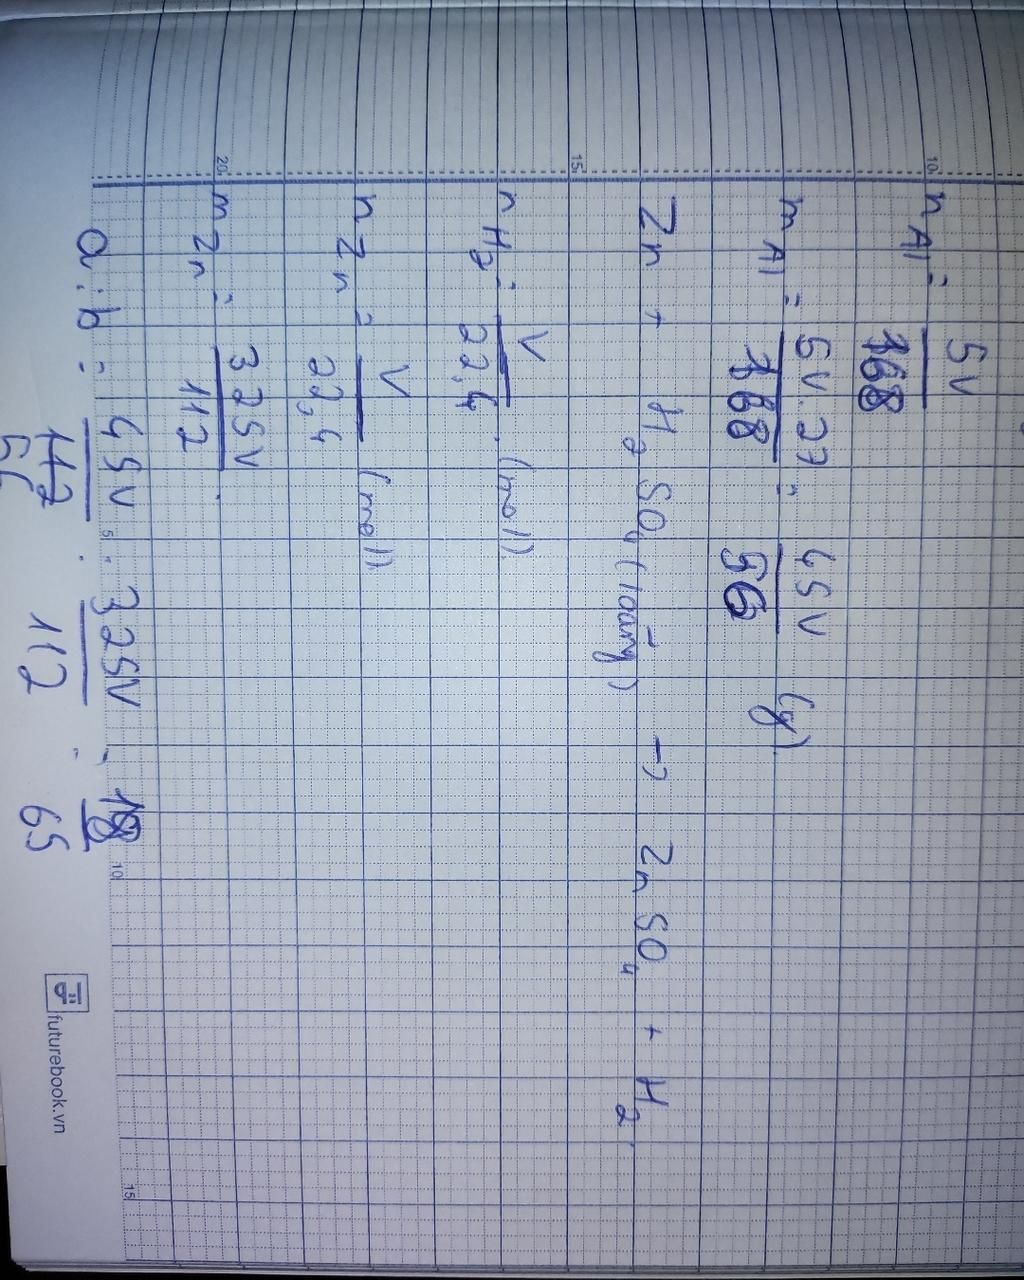 10 n Al = 5V / 168
m Al = 5V.27 / 168 = 45V / 56 (g)
15 Zn + H2SO4 (loãng) → ZnSO4 + H2.
n H2 = V / 22,4 (mol)
n Zn = V / 22,4 (mol)
20 m Zn = 325V / 112
a : b = 45V / 56 : 325V / 112 = 18 / 65
5 10 15
futurebook.vn